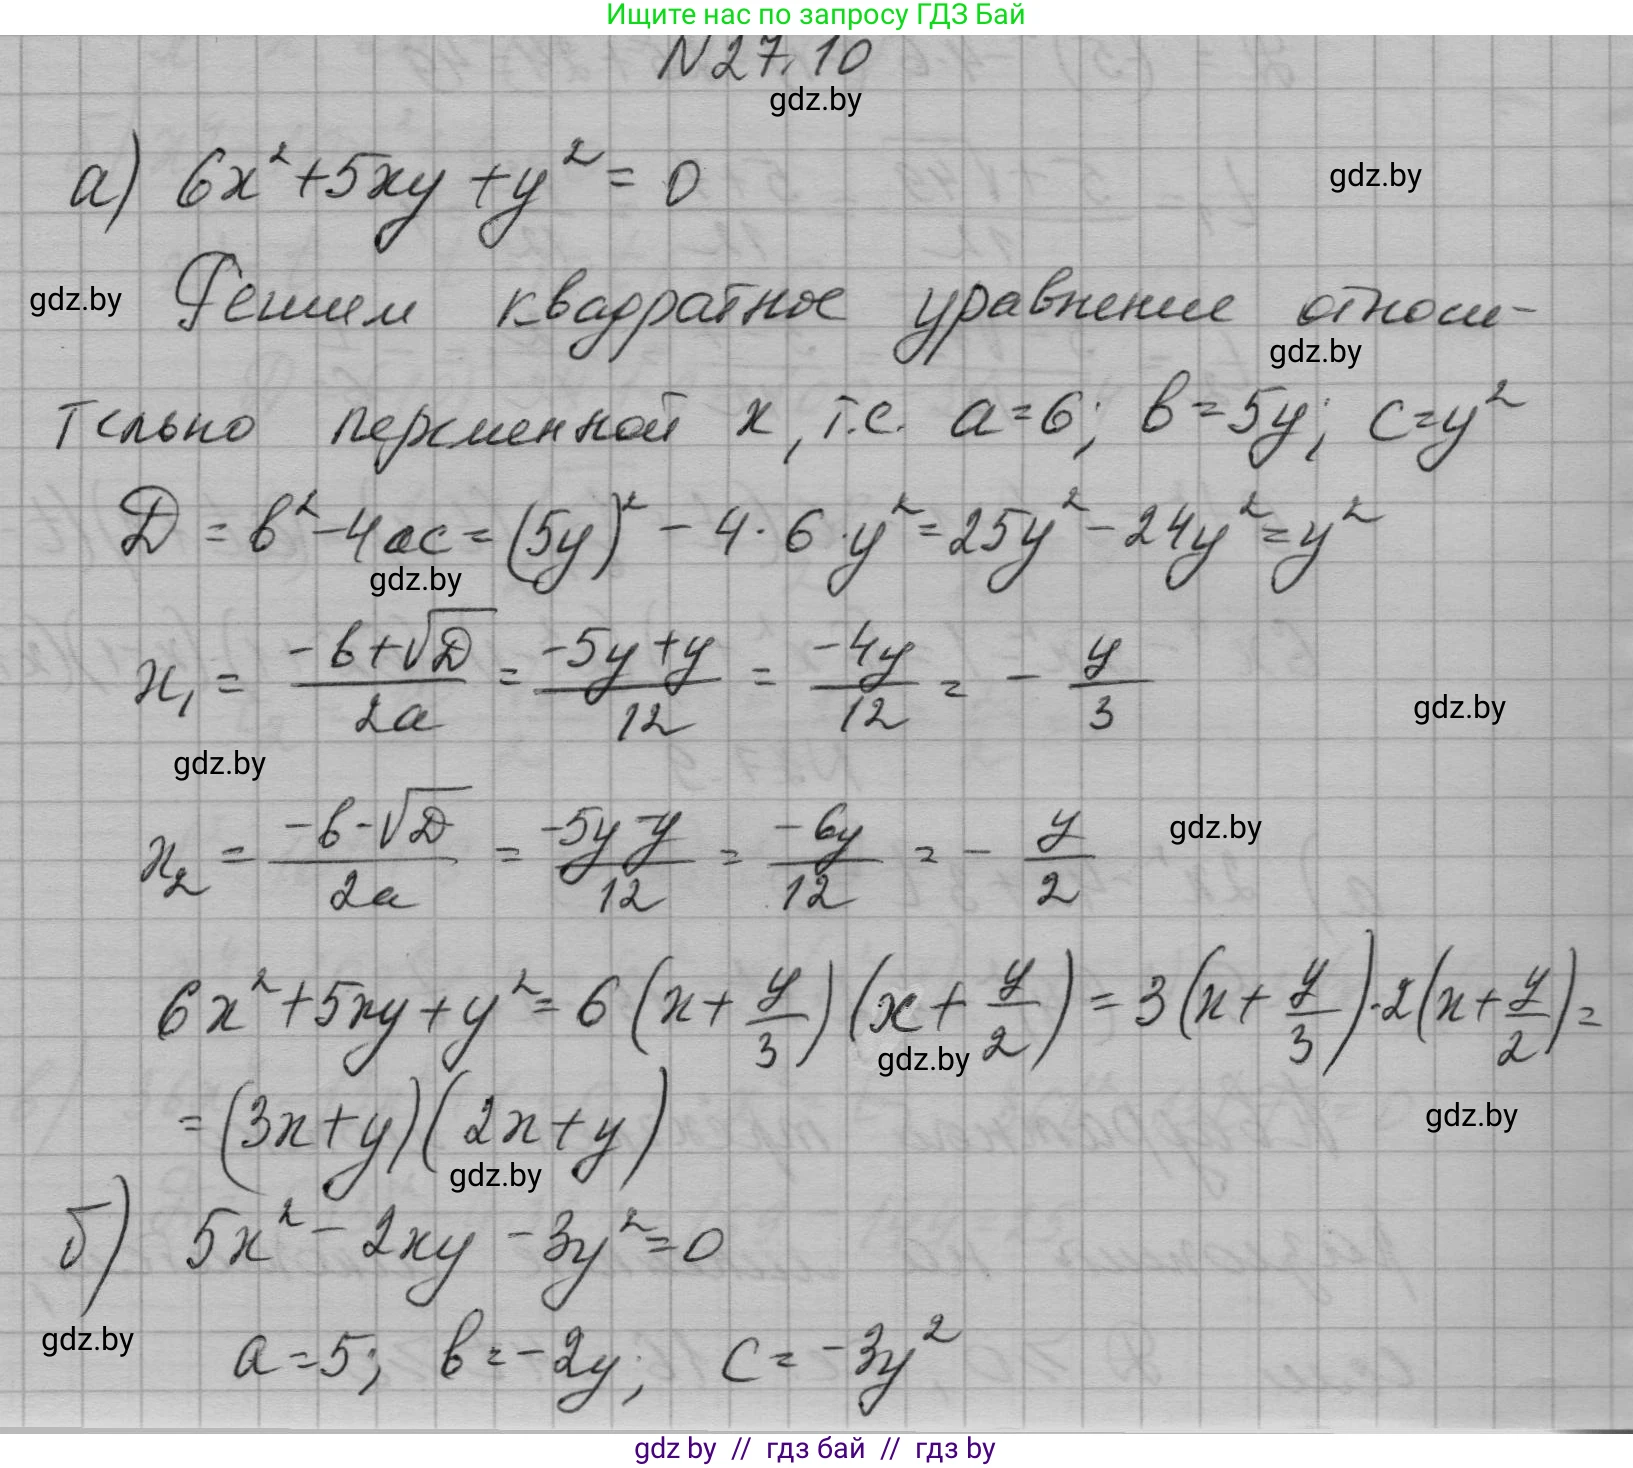 Ищите нас по запросу ГДЗ Бай
N27.10
gdz.by
а) 6x² + 5xy + y² = 0
gdz.by
gdz.by
Решим квадратное уравнение относи-
gdz.by
тельно переменной x, т.е. a=6; b=5y; c=y²
D = b² - 4ac = (5y)² - 4·6·y² = 25y² - 24y² = y²
gdz.by
x₁ = (-b+√D)/2a = (-5y+y)/12 = -4y/12 = - y/3
gdz.by
gdz.by
x₂ = (-b-√D)/2a = (-5y-y)/12 = -6y/12 = - y/2
gdz.by
6x² + 5xy + y² = 6(x + y/3)(x + y/2) = 3(x + y/3)·2(x + y/2) =
gdz.by
= (3x+y)(2x+y)
gdz.by
gdz.by
б) 5x² - 2xy - 3y² = 0
gdz.by
a=5; b=-2y; c=-3y²
gdz by // гдз бай // гдз by